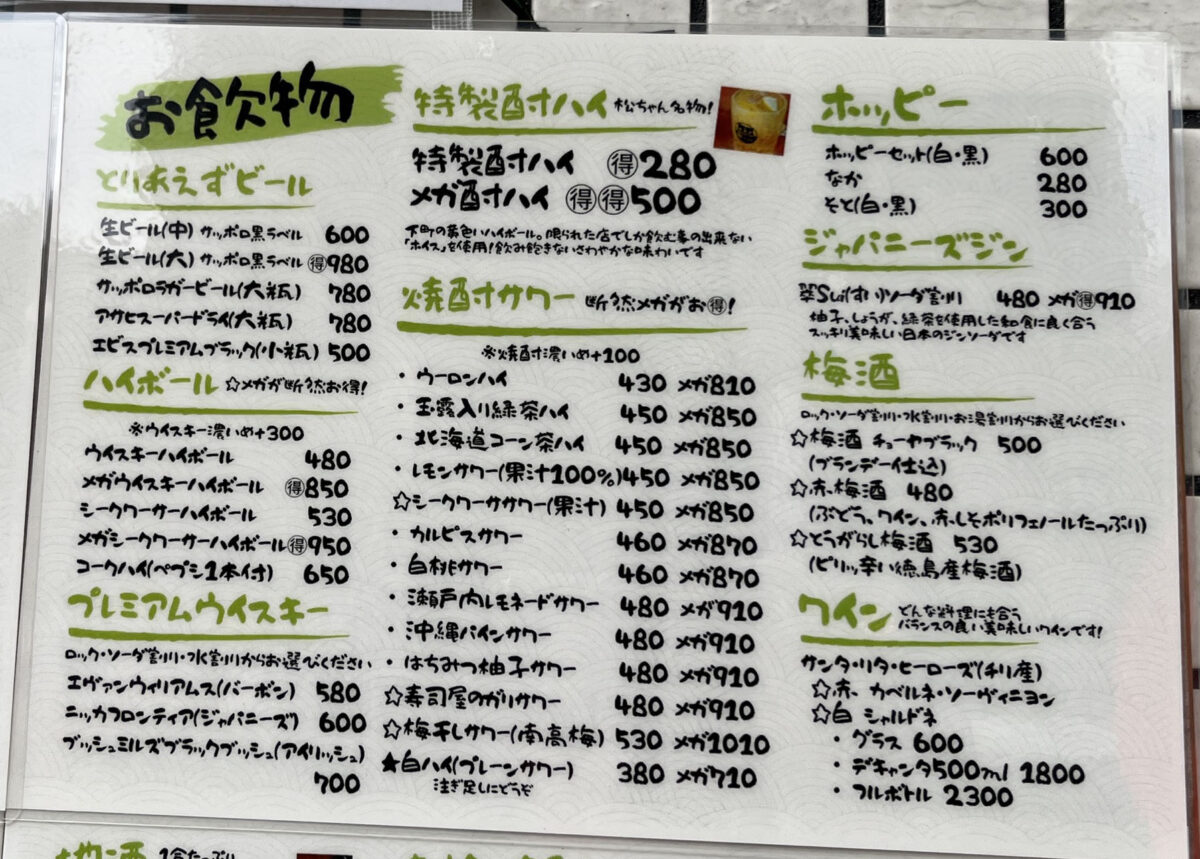 お飲物
とりあえずビール
生ビール(中) サッポロ黒ラベル 600
生ビール(大) サッポロ黒ラベル 得980
サッポロラガービール(大瓶) 780
アサヒスーパードライ(大瓶) 780
エビスプレミアムブラック(小瓶) 500
ハイボール ☆メガが断然お得!
※ウイスキー濃いめ+300
ウイスキーハイボール 480
メガウイスキーハイボール 得850
シークワーサーハイボール 530
メガシークワーサーハイボール 得950
コークハイ(ペプシ1本付) 650
プレミアムウイスキー
ロック・ソーダ割り・水割りからお選びください
エヴァンウィリアムス(バーボン) 580
ニッカフロンティア(ジャパニーズ) 600
ブッシュミルズブラックブッシュ(アイリッシュ)
700
特製酎ハイ 松ちゃん名物!
特製酎ハイ 得280
メガ酎ハイ 得得500
下町の黄色いハイボール。限られた店でしか飲む事の出来ない
「ホイス」を使用!飲み飽きないさわやかな味わいです
焼酎サワー 断然メガがお得!
※焼酎濃いめ+100
・ウーロンハイ 430 メガ810
・玉露入り緑茶ハイ 450 メガ850
・北海道コーン茶ハイ 450 メガ850
・レモンサワー(果汁100%) 450 メガ850
☆シークワーササワー(果汁) 450 メガ850
・カルピスサワー 460 メガ870
・白桃サワー 460 メガ870
・瀬戸内レモネードサワー 480 メガ910
・沖縄パインサワー 480 メガ910
・はちみつ柚子サワー 480 メガ910
☆寿司屋のガリサワー 480 メガ910
☆梅干しサワー(南高梅) 530 メガ1010
★白ハイ(プレーンサワー) 380 メガ710
注ぎ足しにどうぞ
ホッピー
ホッピーセット(白・黒) 600
なか 280
そと(白・黒) 300
ジャパニーズジン
翠Sui(すい)ソーダ割り 480 メガ得910
柚子、しょうが、緑茶を使用した和食に良く合う
スッキリ美味しい日本のジンソーダです
梅酒
ロック・ソーダ割り・水割り・お湯割りからお選びください
☆梅酒 チョーヤブラック 500
(ブランデー仕込)
☆赤梅酒 480
(ぶどう、ワイン、赤しそポリフェノールたっぷり)
☆とうがらし梅酒 530
(ピリッ辛い徳島産梅酒)
ワイン どんな料理にも合う
バランスの良い美味しいワインです!
サンタ・リタ・ヒーローズ(チリ産)
☆赤 カベルネ・ソーヴィニヨン
☆白 シャルドネ
・グラス 600
・デキャンタ500ml 1800
・フルボトル 2300
地酒 1合たっぷり